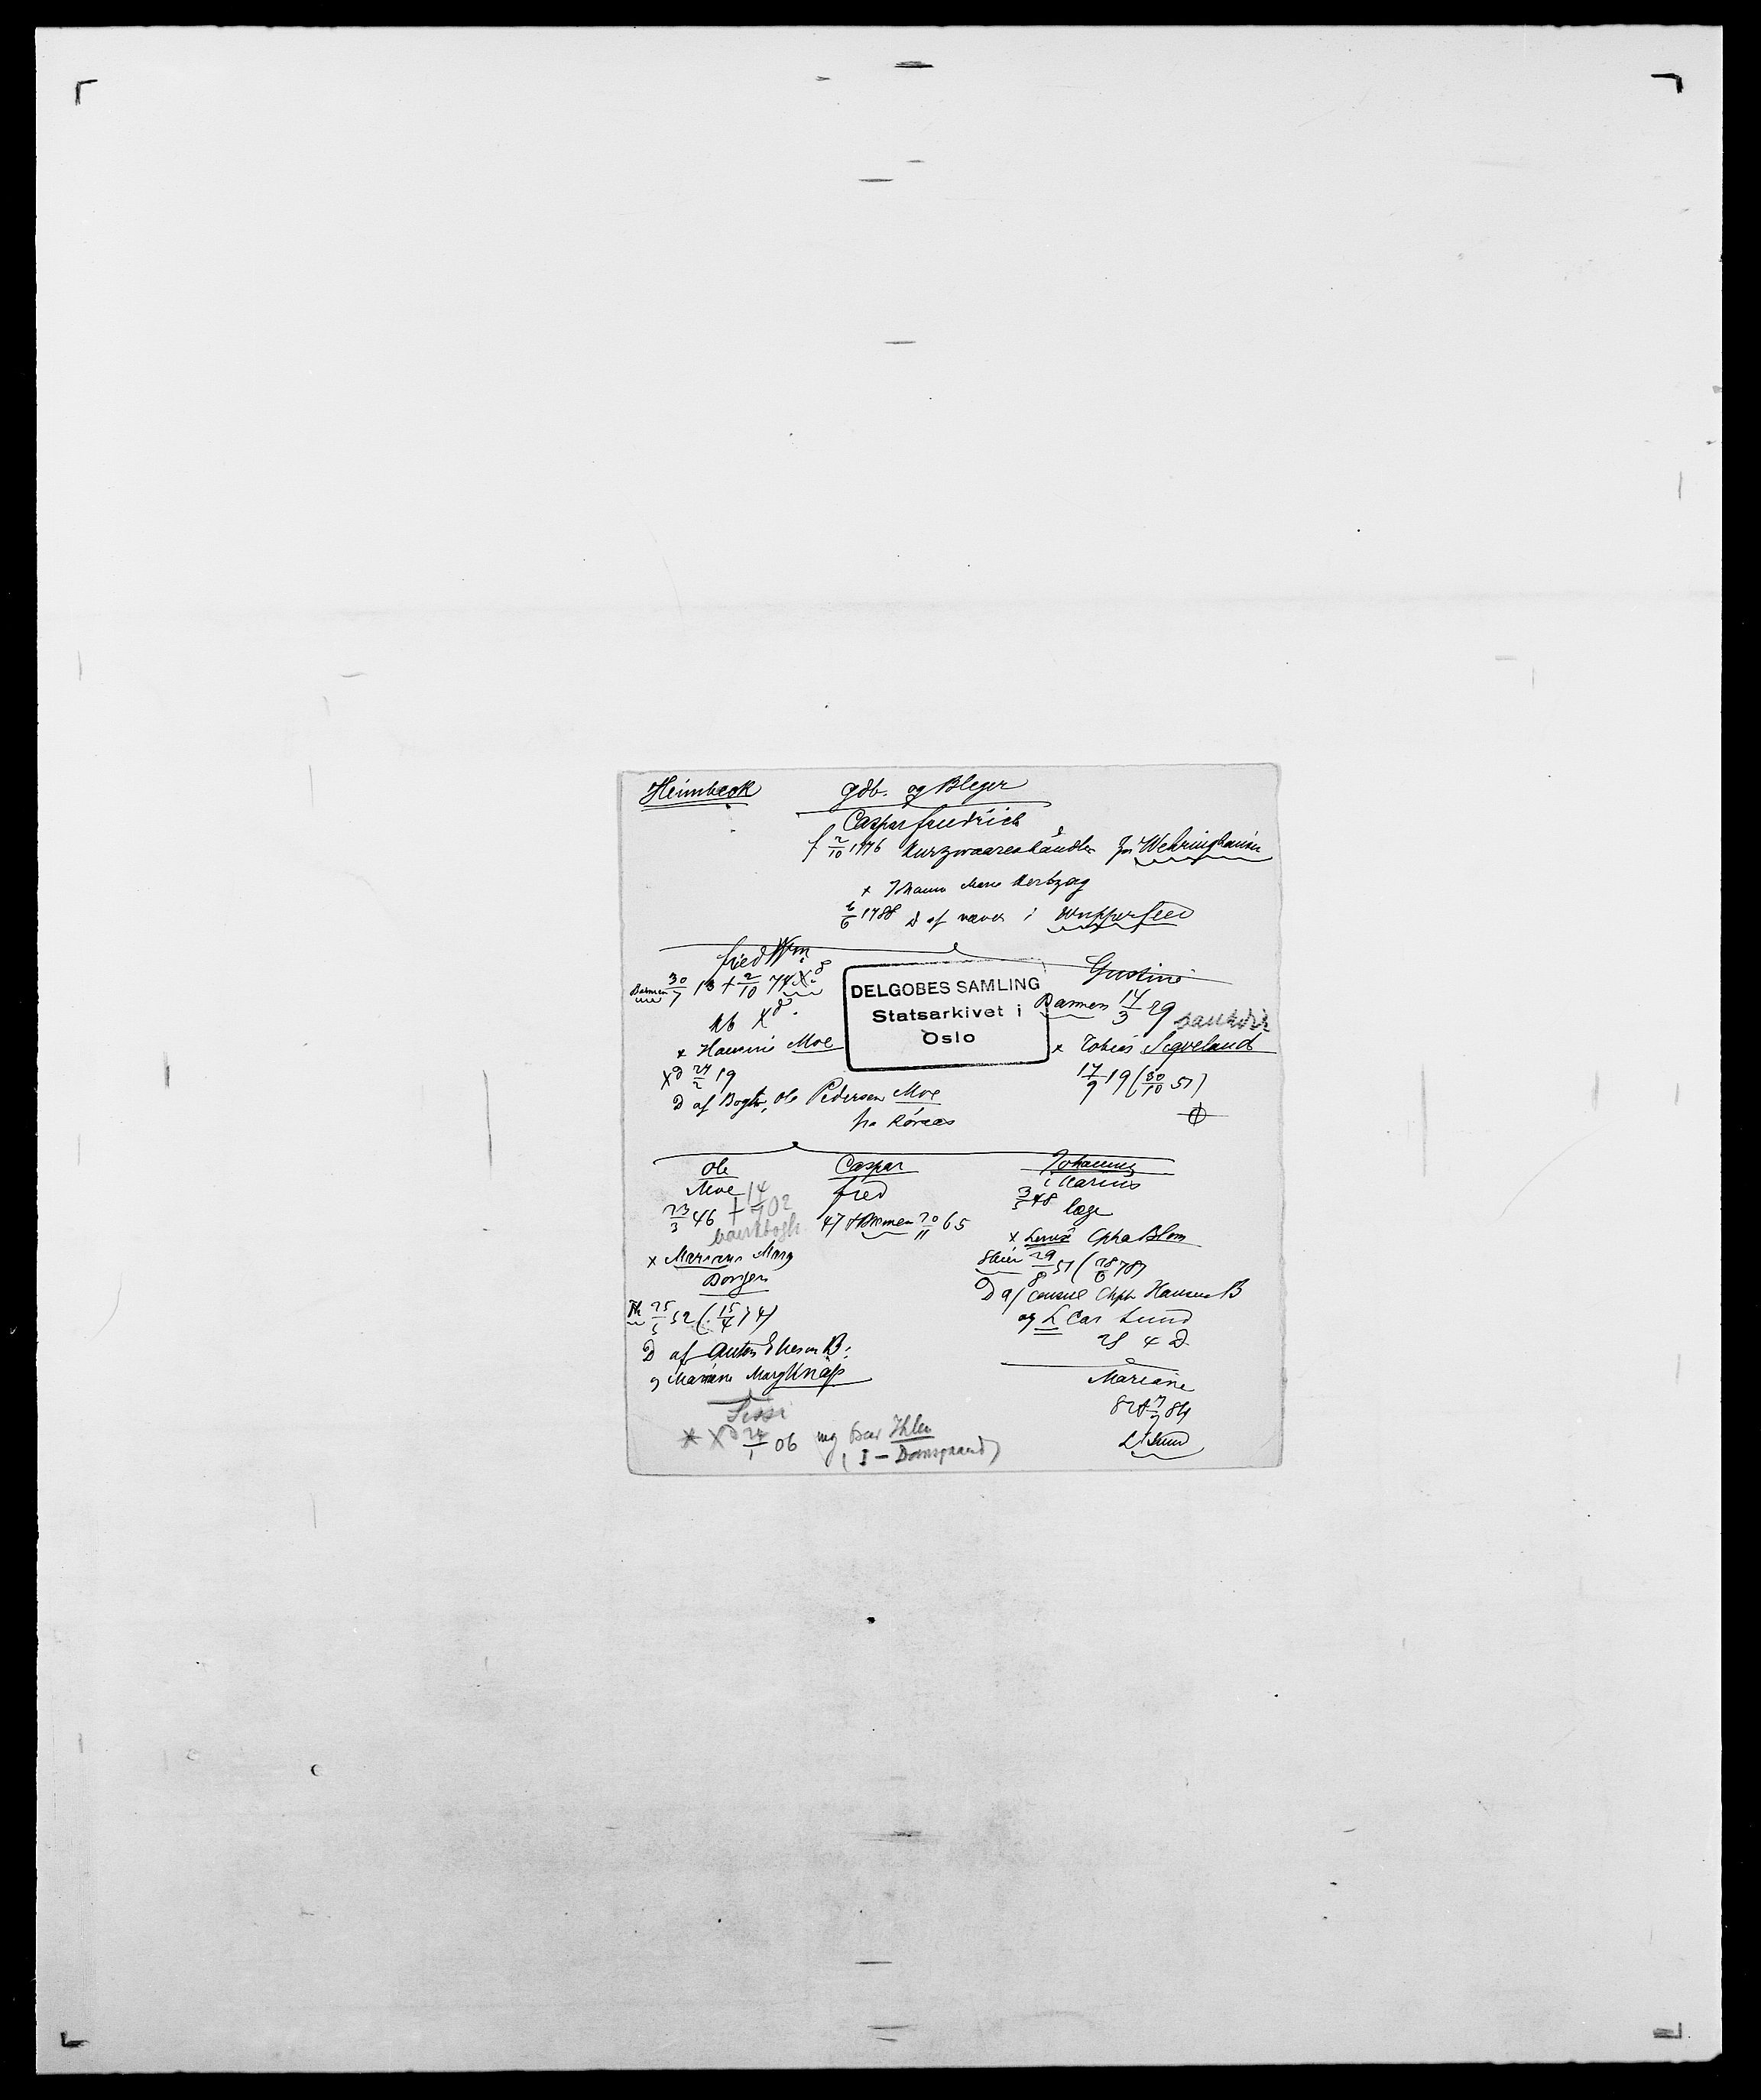 Heimbeck gdb. og Bleger
Caspar friedrich
f 2/10 1776 Kurzwaarenhändler fra Wehringhausen
x Johann Marie Hertzog
6/6 1788 D af væver i Wupperfeld
fried Wm
Barmen 30/7 18 + 2/10 74 Xa
kb Xa
x Hansine Moe
Xa 24/2 19
D af Bogh. Ole Pedersen Moe
fra Røraas
DELGOBES SAMLING
Statsarkivet i
Oslo
Gustine
Barmen 14/3 29
x Tobias Sigveland
17/9 19 (30/10 51)
Ole
Moe
23/3 46 + 14/9 02
bankbogh
x Mariane Marg
Borgen
Th 25/5 52 (15/4 74)
D af Anton Eliesen B:
og Mariane Marg Knap
Sissi
* Xa 24/1 06 ing Ihlen
(I – Domsgaard)
Caspar
fred
47 + Bremen 20/11 65
Johannes
Marius
3/5 48 læge
x Louise Cpha Blom
Skien 29/8 51 (28/6 78)
D af consul Chph Hansen B
og L Car Lund
2S 4 D
Mariane
82 + 7/7 84
L Sund